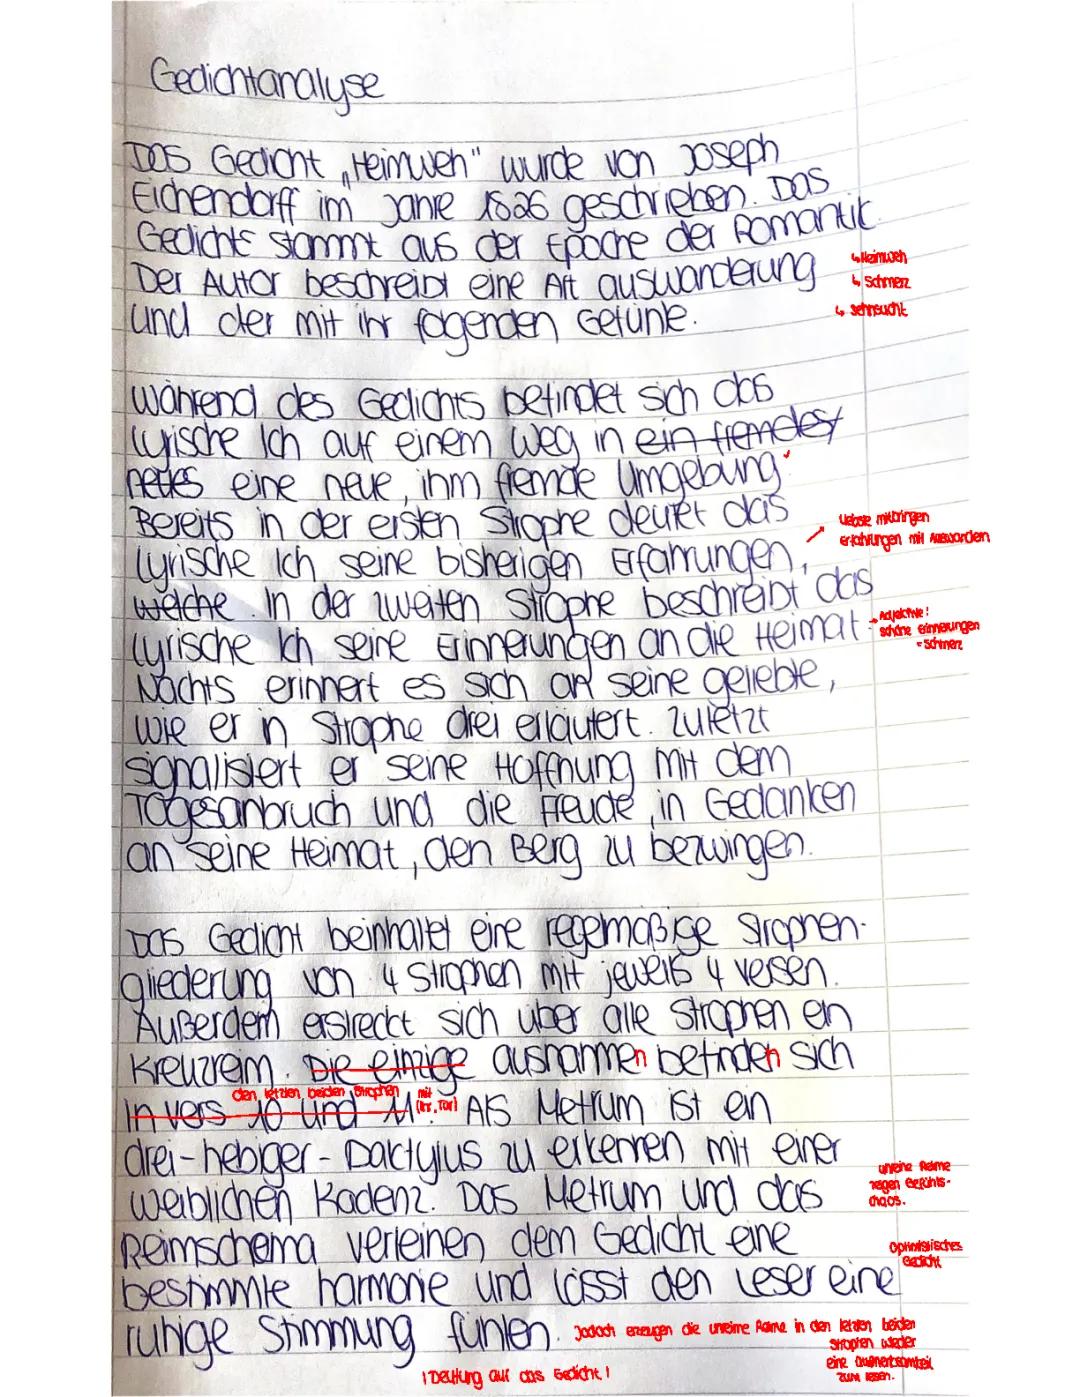 Gedichtanalyse
Das Gedicht „Heimweh" wurde von Joseph
Eichendorff im Jahre 1826 geschrieben. Das
Gedicht stammt aus der Epoche der Romantik.
Der Autor beschreibt eine Art auswanderung
und der mit ihr folgenden Gefühle.
↳ Heimweh
↳ Schmerz
↳ Sehnsucht
Während des Gedichts befindet sich das
lyrische Ich auf einem Weg in ein fremdes
neues eine neue, ihm fremde Umgebung.
Bereits in der ersten Strophe deutet das
lyrische Ich seine bisherigen Erfahrungen,
welche. In der zweiten Strophe beschreibt das
lyrische Ich seine Erinnerungen an die Heimat.
Nachts erinnert es sich an seine geliebte,
wie er in Strophe drei erläutert. Zuletzt
signalisiert er seine Hoffnung mit dem
Tagesanbruch und die Freude, in Gedanken
an seine Heimat, den Berg zu bezwingen.
Liebste mitbringen
erfahrungen mit Auswandern
→ Adjektive!
schöne Erinnerungen
= Schmerz
Das Gedicht beinhaltet eine regelmäßige Strophen-
gliederung von 4 Strophen mit jeweils 4 versen.
Außerdem erstreckt sich über alle Strophen ein
Kreuzreim. Die einzige ausnahmen befinden sich
den letzten beiden Strophen mit
In vers 10 und 11. Als Metrum ist ein
drei-hebiger-Daktylus zu erkennen mit einer
weiblichen Kadenz. Das Metrum und das
Reimschema verleihen dem Gedicht eine
bestimmte harmonie und lässt den Leser eine
ruhige Stimmung fühlen.
unreine Reime
zegen Gefühls-
chaos.
Optimistisches
Gedicht
Jedoch erzeugen die unreine Reime in den letzten beiden
Strophen wieder
eine Aufmerksamkeit
zum lesen.
! Deutung auf das Gedicht !